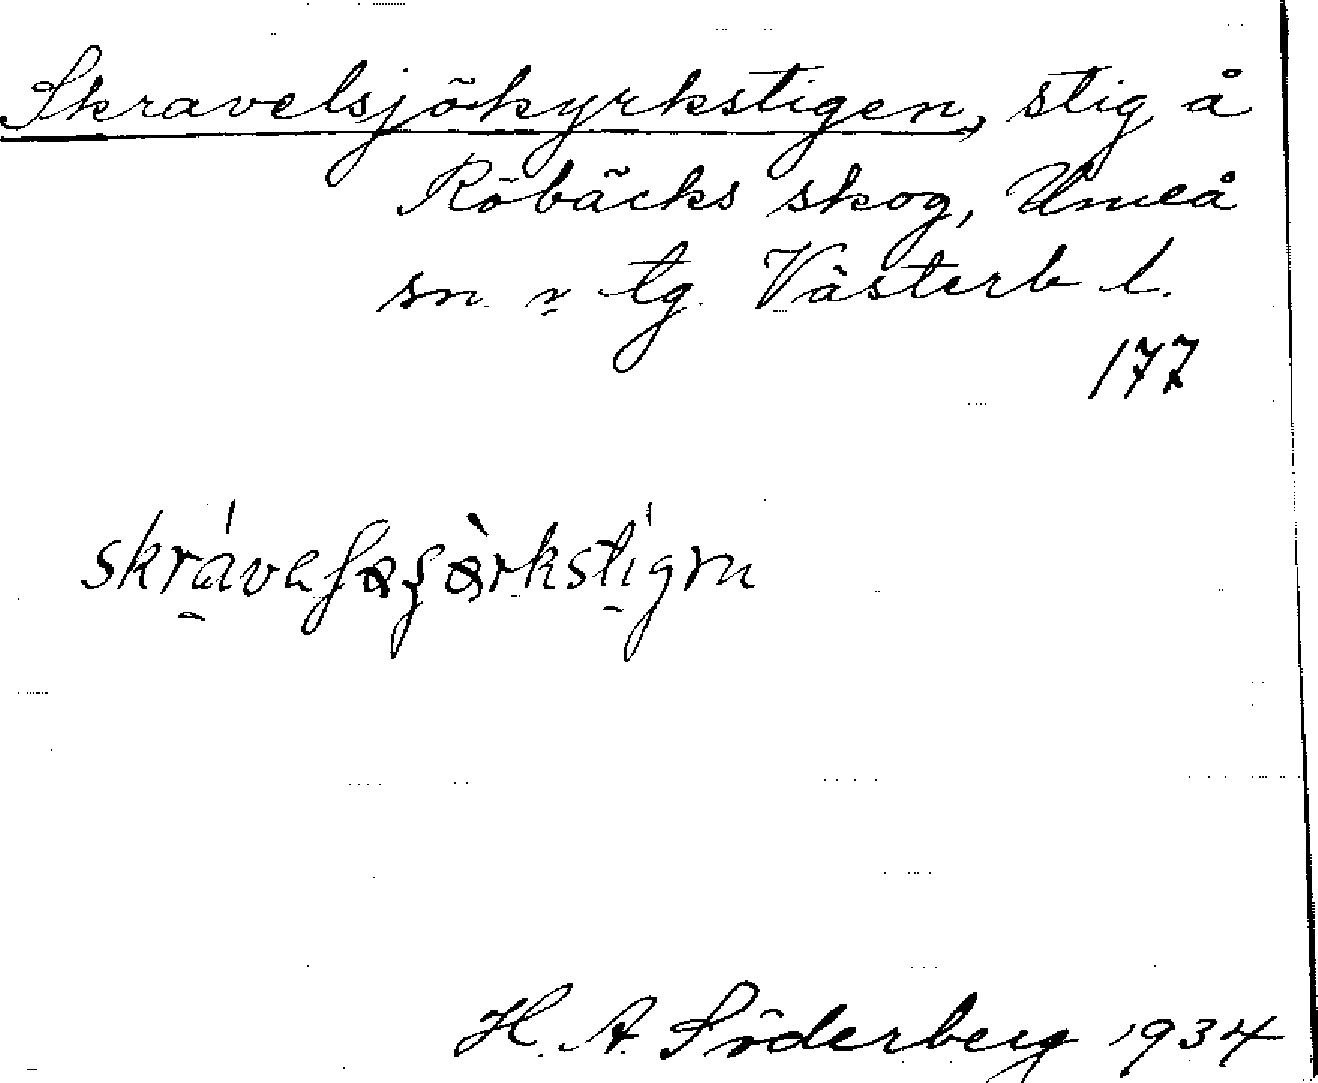 Skravelsjökyrkstigen, stig å
Röbäcks skog, Umeå
sn o tg Västerb l.
177
H. A. Söderberg 1934